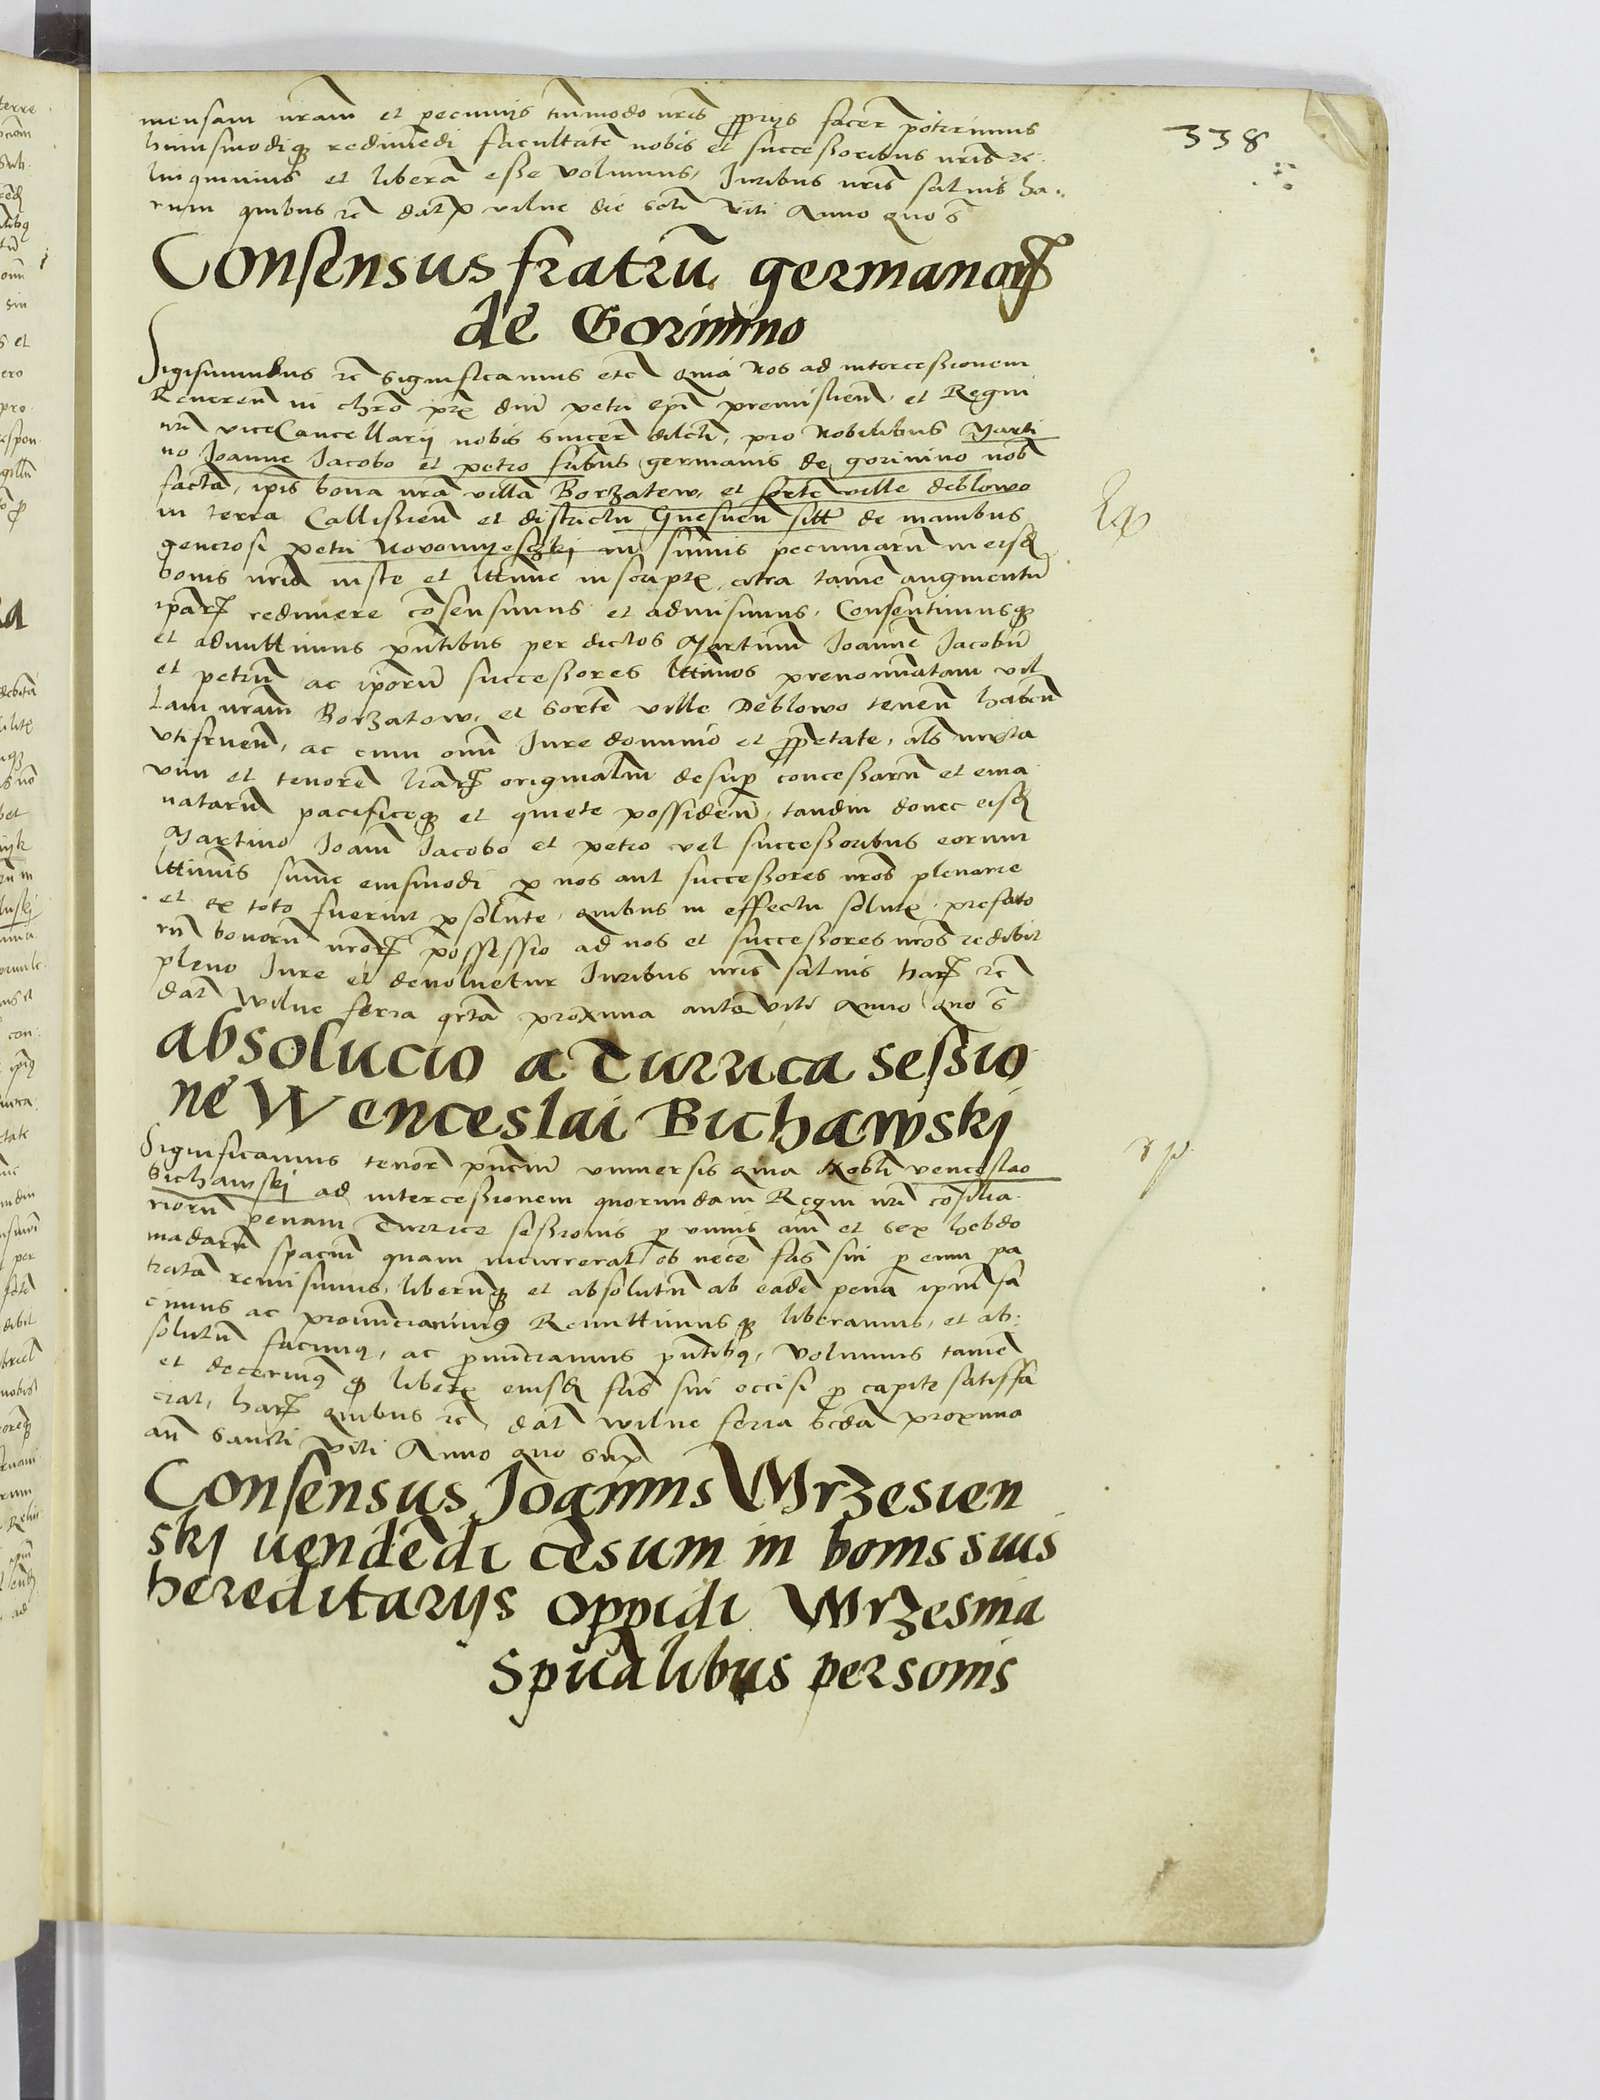 338
mensam nram et pecunijs tmmodo nris prijs facere poterimus
huiusmodiq redimedi facultate nobis et successoribus nris re
linquimus et libera esse volumus, Juribus nris saluis ha
rum quibus rc dat vilne die scti viti Anno quo s
Consensus fratru germanor
de Gorinino
Sigismundus rc significamus etc quia Nos ad intercessionem
Reueren in chro pris dni petri epi premislien et Regni
nri viceCancellarij nobis sincere dilcti, pro Nobilibus Marti
no Joanne Jacobo et petro fribus germanis de gorinino nob
facta, ipis bona nra villa Borzatew, et sorte ville deblowo
in terra Callissien et districtu Gnesnen sitt de manibus
generosi petri Novomyeszkj in sumis pecuniarum in eisd
bonis nris iuste et lttime inscriptis citra tame augmentu
ipar redimere cosensimus et admisimus, Consentimusq
et admittimus pntibus per dictos Martinu Joanne Jacobu
et petru ac iporu successores lttimos prenominatam vil
lam nram Borzatow, et sorte ville Deblowo tenen haben
vtifruen, ac cum omi Jure dominio et proprietate, als iuxta
vim et tenore lrar originalim desuper concessaru et ema
nataru pacificeq et quiete possiden, tandiu donec eisd
Martino Joani Jacobo et petro vel successoribus eorum
lttimis sume eiusmodi p nos aut successores nros plenarie
et ex toto fuerint psolute, quibus in effectu solutis prefato
ru bonoru nror possessio ad nos et successores nros redibit
pleno Jure et deuoluetur Juribus nris saluis har rc
dat Wilne feria qrta proxima ante viti Anno quo s
absolucio a Turrica sessio
ne Wenceslai Bichawskj
Significamus tenore pncium vniuersis quia Nobli venceslao
Bichawskj ad intercessionem quorundam Regni nri cosilia
rioru penam Turrice sessionis p vnius ani et sex hebdo
madaru spaciu quam incurrerat ob nece fris sui p eum pa
trata remisimus, liberuq et absolutu ab eade pena ipum fa
cimus ac pronunciamus Remittimusq liberamus, et ab
solutu facimus, ac pnunciamus pntibus, Volumus tame
et decernimus q liberis eiusd fris sui occisi p capite satisfa
ciat, har quibus rc, dat wilne feria scda proxima
an Sancti viti Anno quo supra
Consensus Joannis Wrzesien
skj uendedi cesum in bonis suis
hereditarijs oppidi Wrzesnia
Spualibus personis